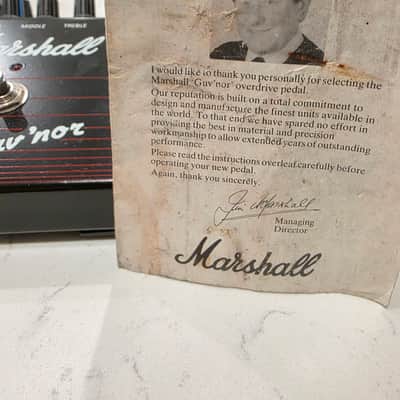 MIDDLE TREBLE
Marshall
Guv'nor
I would like to thank you personally for selecting the
Marshall 'Guv'nor' overdrive pedal.
Our reputation is built on a total commitment to
design and manufacture the finest units available in
the world. To that end we have spared no effort in
providing the best in material and precision
workmanship to allow extended years of outstanding
performance.
Please read the instructions overleaf carefully before
operating your new pedal.
Again, thank you sincerely.
Jim Marshall
Managing
Director
Marshall